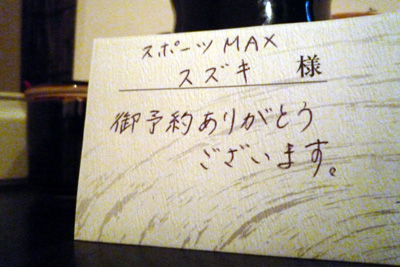 スポーツMAX
スズキ 様
御予約ありがとう
ございます。